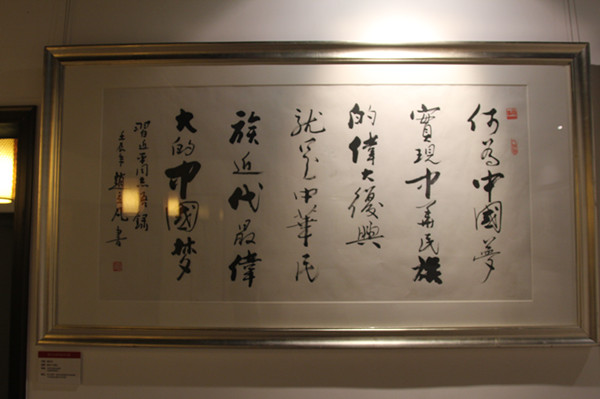 何為中國夢
實現中華民族
的偉大復興
就是中華民
族近代最偉
大的中國梦
習近平同志語錄
壬辰年 凡書